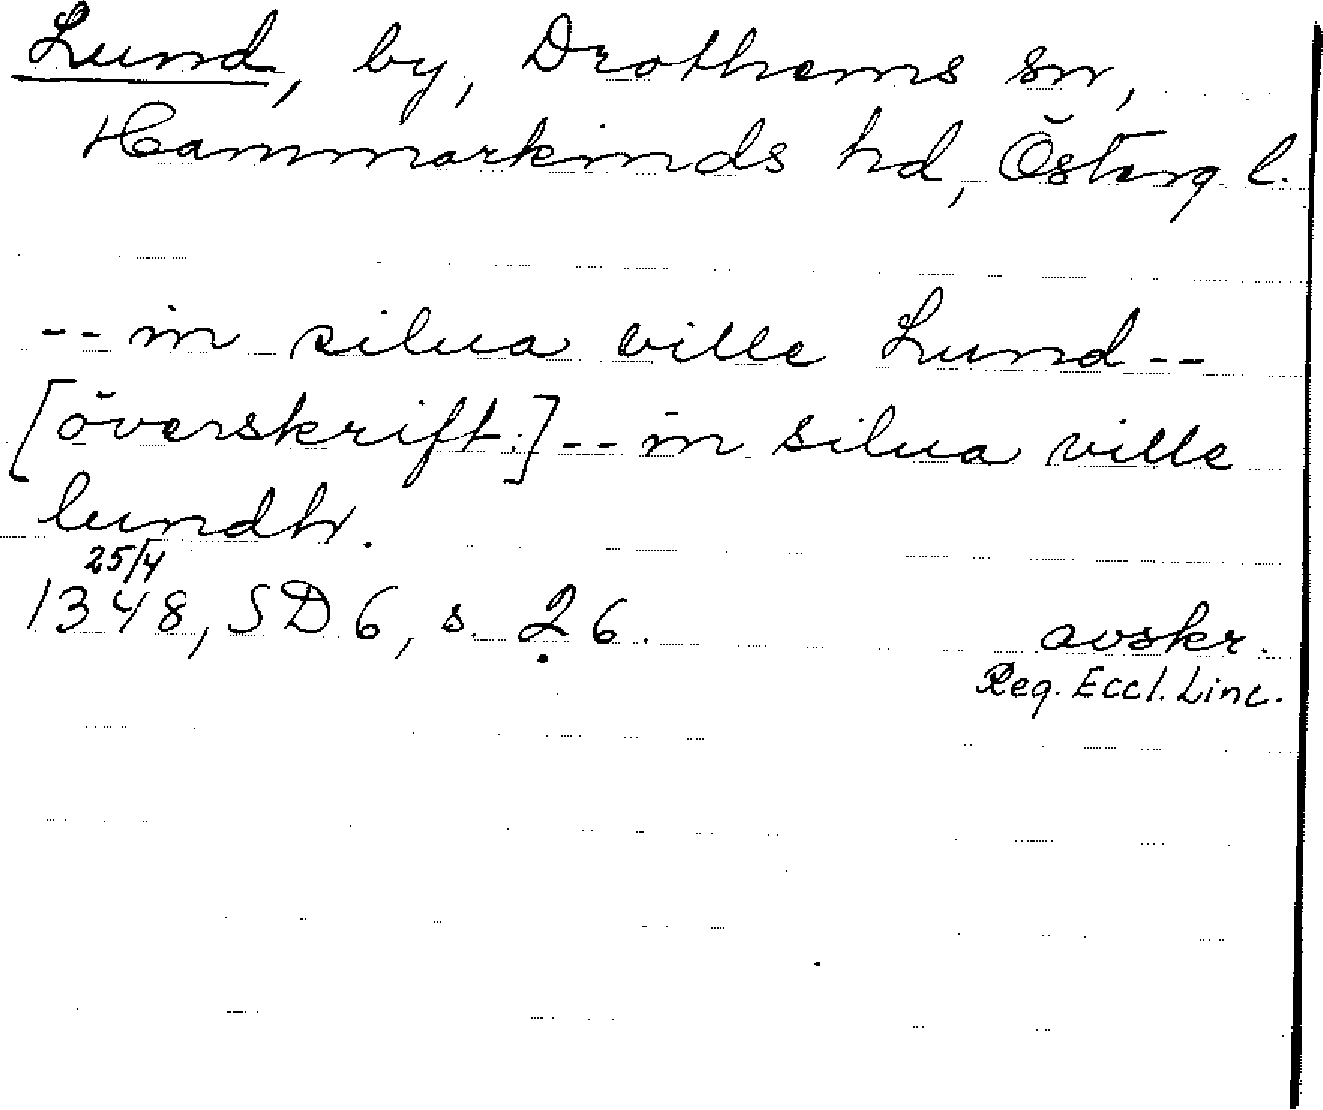 Lund, by, Drothems sn,
Hammarkinds hd, Österg. l.
-- in silua ville Lund --
[överskrift.] -- in silua ville
lundh.
25/4
1348, SD 6, s. 26.
avskr.
Reg. Eccl. Linc.